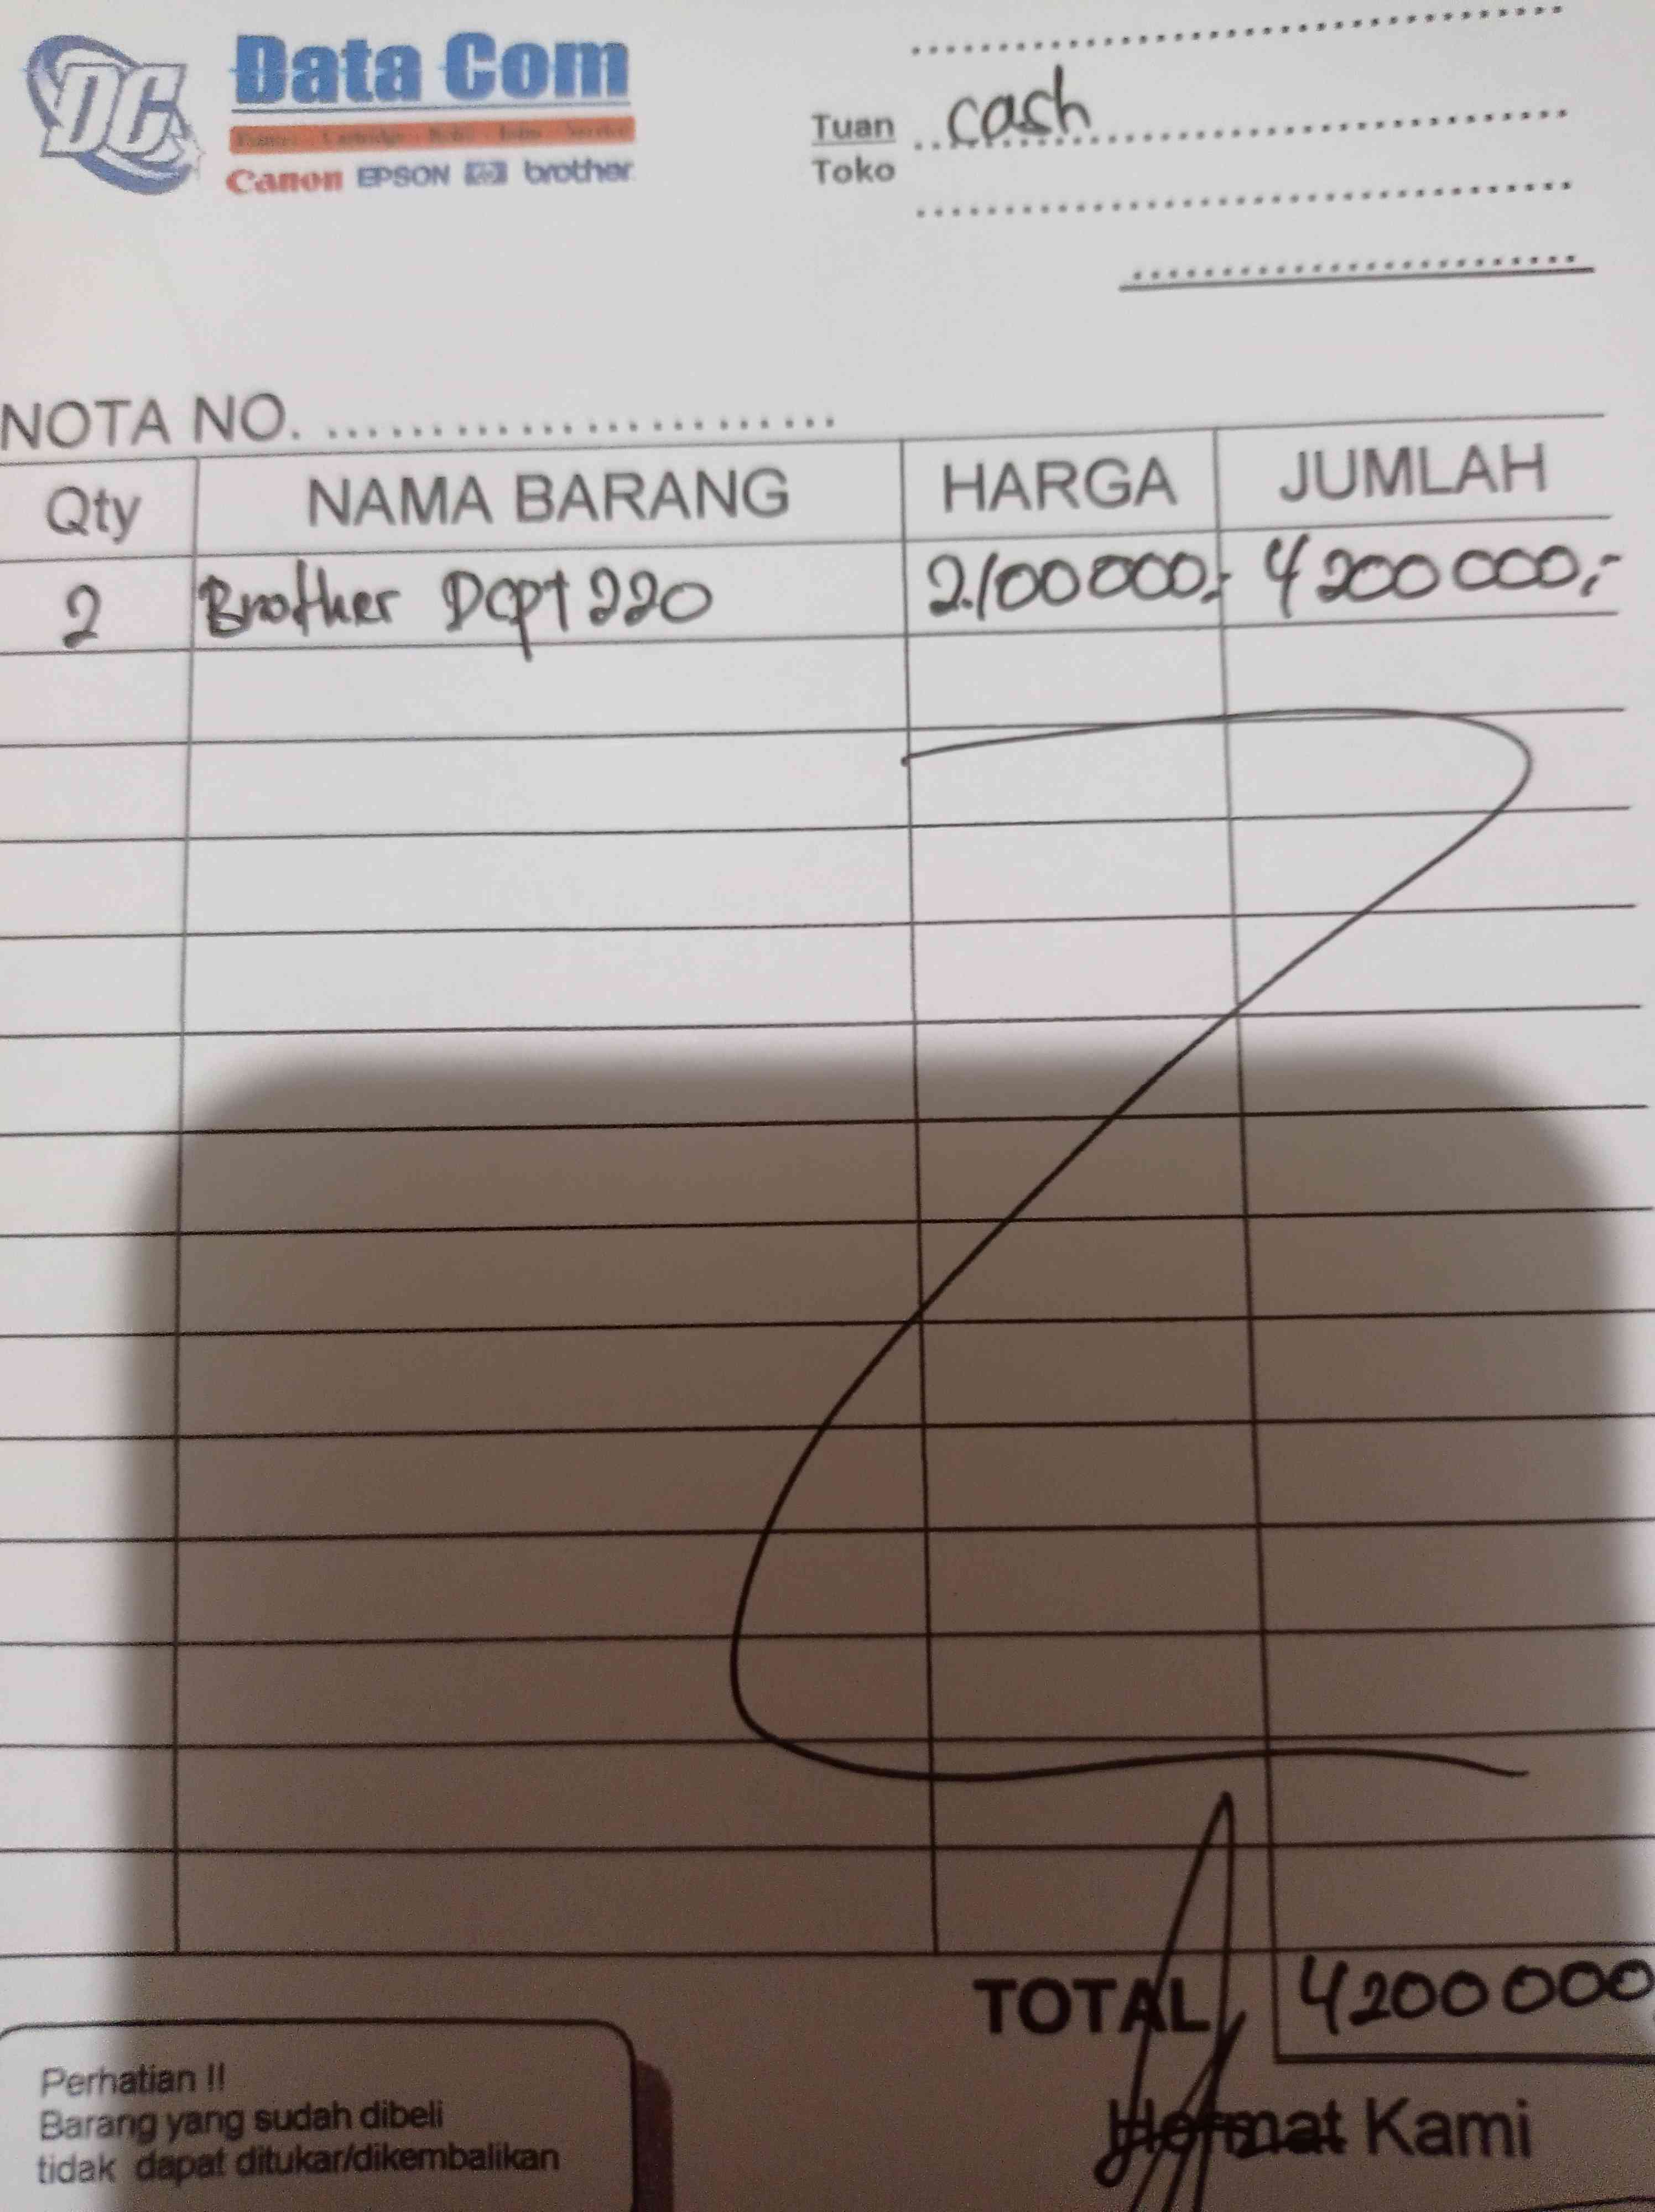 DC Data Com
Printer - Cartridge - Refill - Infus - Service
Canon EPSON hp brother
Tuan cash
Toko
NOTA NO. ........................
Qty NAMA BARANG HARGA JUMLAH
2 Brother Dcpt 220 2.100 000,- 4 200 000,-
TOTAL 4 200 000
Perhatian !!
Barang yang sudah dibeli
tidak dapat ditukar/dikembalikan
Hormat Kami